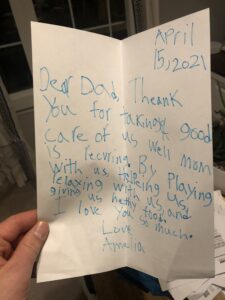 April
15, 2021
Dear Dad, Theank
You for taking good
care of us well mom
is recuring. By Playing
with us, taking us,
relaxing with us,
giving us helthy food, and
I love you so much.
Love,
Amelia